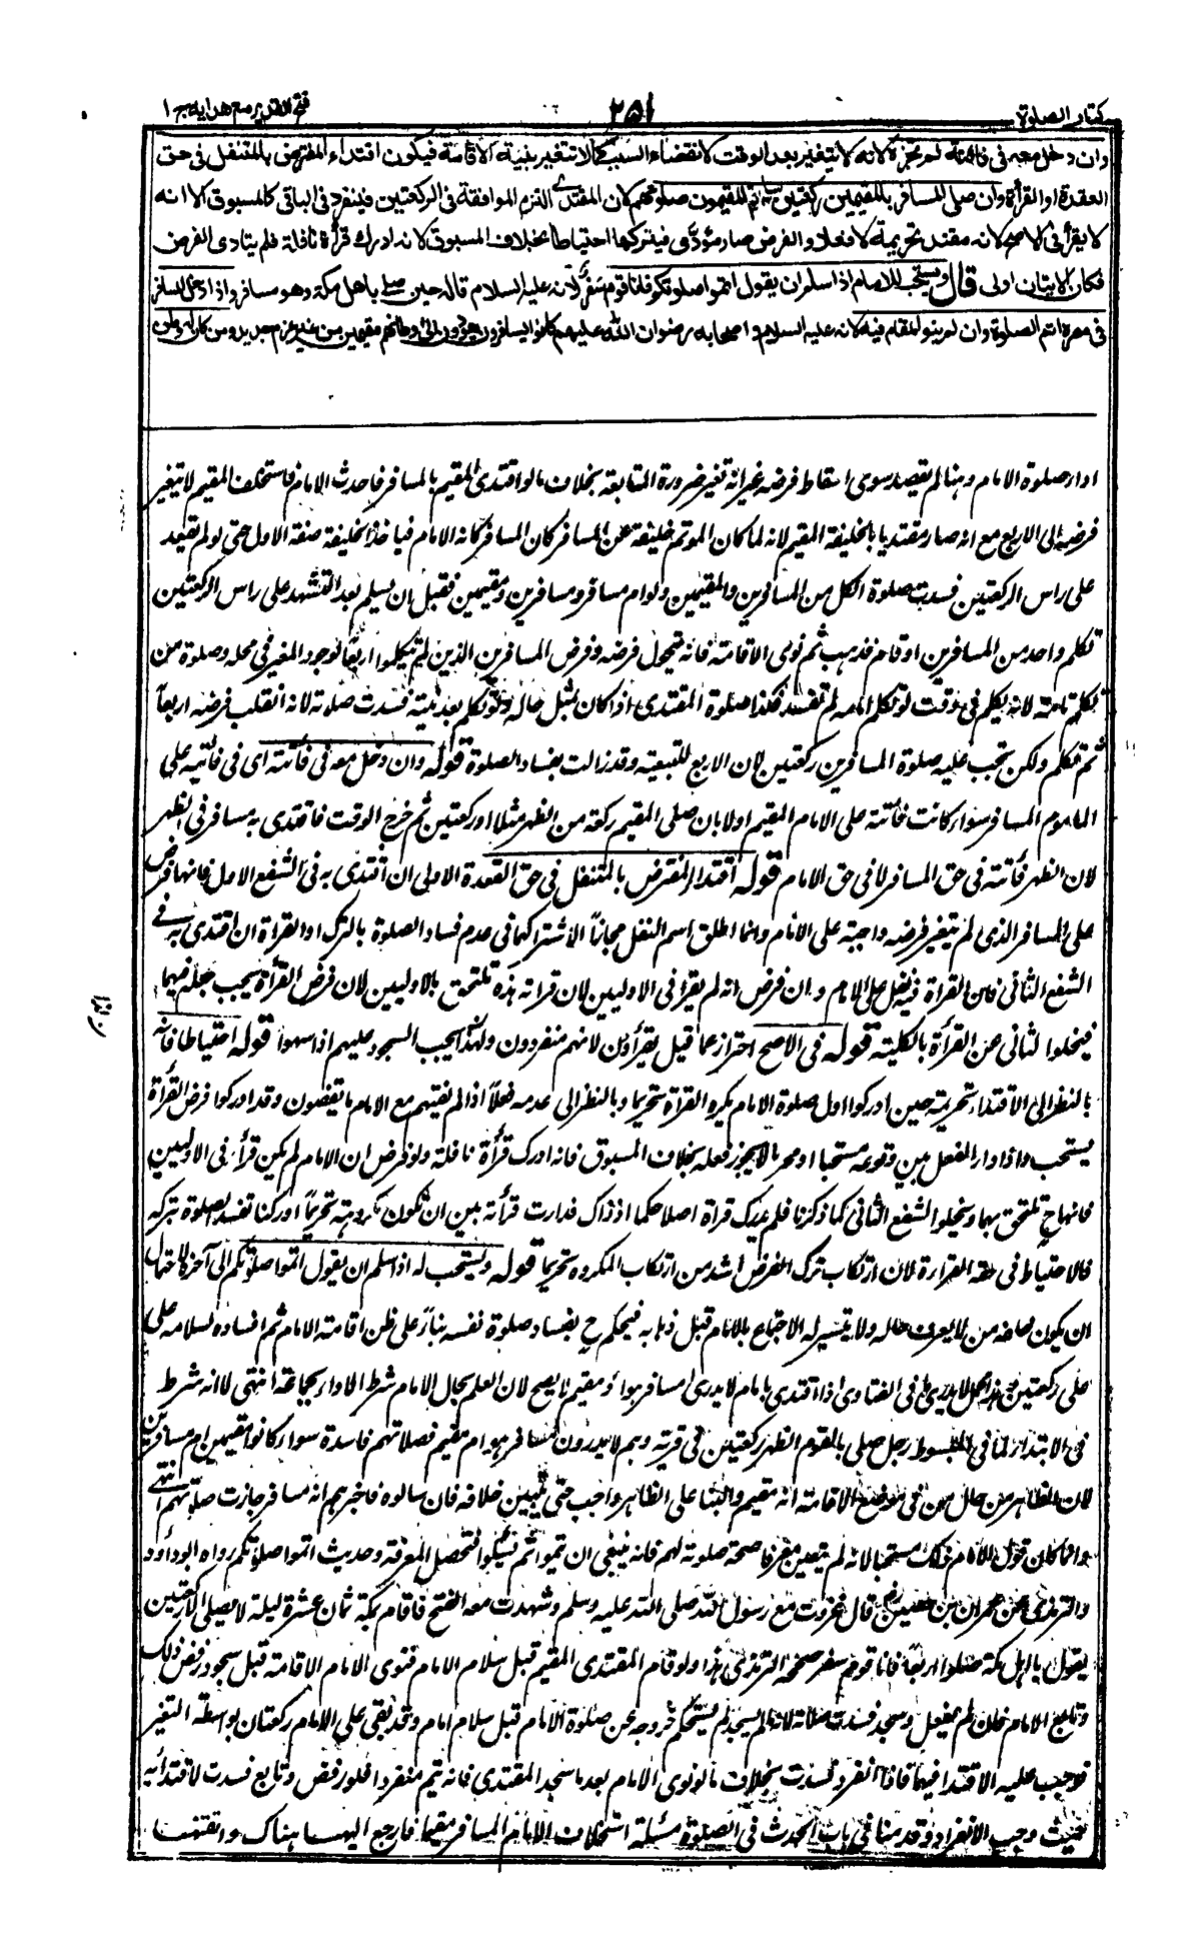 كتاب الصلوة ٢٥١ فتح القدير مع هدايه ج ١
وان دخل معه فى فائتة لم تجزه لانه لا يتغير بعد الوقت لانقضاء السبب كما لا تتغير بنية الاقامة فيكون اقتداء المفترض بالمتنفل فى حق
العقدة او القرأة وان صلى المسافر بالمقيمين ركعتين سلم واتم المقيمون صلوتهم لان المقتدى التزم الموافقة فى الركعتين فينفرد فى الباقى كالمسبوق الا انه
لا يقرأ فى الاصح لانه مقتد تحريمة لا فعلا و الفرض صار مؤدّى فيتركها احتياطا بخلاف المسبوق لانه ادرك قرأة نافلة فلم يتادى الفرض
فكان الاتيان اولى قال ويستحب للامام اذا سلم ان يقول اتموا صلوتكم فانا قوم سَفْرٌ لانه عليه السلام قاله حين صلے باهل مكة وهو مسافر واذا دخل المسافر
فى مصره اتم الصلوة وان لم ينو المقام فيه لانه عليه السلام و اصحابه رضوان الله عليهم كانوا يسافرون ويعودون الى اوطانهم مقيمين من غير عزم جديد ومن كان له وطن
اداء صلوة الامام وهنا لم يقصد سوى اسقاط فرضه غير انه تغير ضرورة المتابعة بخلاف ما لو اقتدى المقيم بالمسافر فاحدث الامام فاستخلف المقيم لا يتغير
فرضه الى الاربع مع انه صار مقتديا بالخليفة المقيم لانه لما كان الموتم خليفة عن المسافر كان المسافر كانه الامام فياخذ الخليفة صفة الاول حتى لو لم يقعد
على راس الركعتين فسدت صلوة الكل من المسافرين والمقيمين ولو ام مسافر مسافرين ومقيمين فقبل ان يسلم بعد التشهد على راس الركعتين
تكلم واحد من المسافرين او قام فذهب ثم نوى الاقامة فانه يتحول فرضه وفرض المسافرين الذين لم يتكلموا اربعا لوجود المغير فى محله وصلوة من
تكلم تامة لانه تكلم فى وقت لو تكلم امامه لم تفسد فكذا صلوة المقتدى اذا كان بمثل حاله ولو تكلم بعد نيته فسدت صلاته لانه انقلب فرضه اربعا
ثم تكلم ولكن يجب عليه صلوة المسافرين ركعتين لان الاربع للتبعية وقد زالت بفساد الصلوة قوله وان دخل معه فى فائتة اى فى فائتة على
الماموم المسافر سواء كانت فائتة على الامام المقيم اولا بان صلى المقيم ركعة من الظهر مثلا او ركعتين ثم خرج الوقت فاقتدى به مسافر فى الظهر
لان الظهر فائتة فى حق المسافر لا فى حق الامام قوله اقتداء المفترض بالمتنفل فى حق القعدة الاولى ان اقتدى به فى الشفع الاول فانها فرض
على المسافر الذى لم يتغير فرضه واجبة على الامام وانما اطلق اسم النفل مجازا لاشتراكهما فى عدم فساد الصلوة بالترك او القراة ان اقتدى به فى
الشفع الثانى فان القراة فيه نفل على الامام و ان فرض انه لم يقرأ فى الاوليين لان قراته هذه تلتحق بالاوليين لان فرض القرأة يجب جعله فيهما
فيخلوا الثانى عن القرأة بالكلية قوله فى الاصح احتراز عما قيل يقرأون لانهم منفردون ولهذا يجب السجود عليهم اذا سهوا قوله احتياطا فانه
بالنظر الى الاقتداء تحريمة حين ادركوا اول صلوة الامام يكره القراة تحريما وبالنظر الى عدمه فعلا اذ لم يفتهم مع الامام ما يقضون وقد ادركوا فرض القرأة
يستحب واذا دار الفعل بين وقوعه مستحبا او محرما لا يجوز فعله بخلاف المسبوق فانه ادرك قرأة نافلة ولو فرض ان الامام لم يكن قرأ فى الاوليين
فانها ح تلتحق بهما ويخلوا الشفع الثانى كما ذكرنا فلم يدرك قراة اصلا حكما اذ ذاك فدارت قرأته بين ان تكون مكروهة تحريما او ركنا تفسد الصلوة بتركه
فالاحتياط فى حقه القراءة لان ارتكاب ترك الفرض اشد من ارتكاب المكروه تحريما قوله ويستحب له اذا سلم ان يقول اتموا صلوتكم الى آخره لاحتمال
ان يكون خلفه من لا يعرف حاله ولا يتيسر له الاجتماع بالامام قبل ذهابه فيحكم ح بفساد صلوة نفسه بناء على ظن اقامة الامام ثم افساده بسلامه على
على ركعتين وهذا محمل ما فى الفتاوى اذا اقتدى بامام لا يدرى امسافر هو او مقيم لا يصح لان العلم بحال الامام شرط الاداء بجماعة انتهى لا انه شرط
فى الابتداء لما فى المبسوط رجل صلى بالقوم الظهر ركعتين فى قرية وهم لا يدرون امسافر هو ام مقيم فصلاتهم فاسدة سواء كانوا مقيمين ام مسافرين
لان الظاهر من حال من فى موضع الاقامة انه مقيم والبناء على الظاهر واجب حتى يتبين خلافه فان سالوه فاخبرهم انه مسافر جازت صلاتهم انتهى
وانما كان قول الامام ذلك مستحبا لانه لم يتعين معرفا صحة صلوته لهم فانه ينبغى ان يتموا ثم يسئلوا فتحصل المعرفة وحديث اتموا صلوتكم رواه ابو داود
والترمذى عن عمران بن حصين رض قال غزوت مع رسول الله صلى الله عليه وسلم وشهدت معه الفتح فاقام بمكة ثمان عشرة ليلة لا يصلى الا ركعتين
يقول يا اهل مكة صلوا اربعا فانا قوم سفر صححه الترمذى هذا ولو قام المقتدى المقيم قبل سلام الامام فنوى الامام الاقامة قبل سجوده رفض ذلك
وتابع الامام فان لم يفعل وسجد فسدت صلاته لانه ما لم يسجد لم يستحكم خروجه عن صلوة الامام قبل سلام امام وقد بقى على الامام ركعتان بواسطة التغير
فوجب عليه الاقتداء فيهما فاذا انفرد فسدت بخلاف ما لو نوى الامام بعد ما سجد المقتدى فانه يتم منفردا فلو رفض وتابع فسدت لاقتدائه
حيث وجب الانفراد وقد منا فى باب الحدث فى الصلوة مسئلة استخلاف الامام المسافر مقيما فارجع اليها هناك و اتقنها